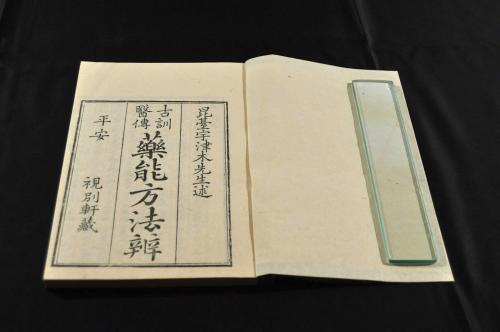 昆臺宇津木先生述
古訓
醫傳
藥能方法辨
平安
視別軒藏